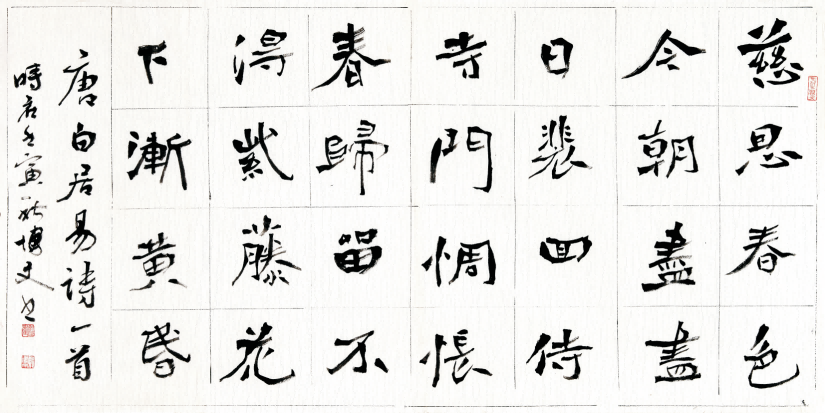 慈恩春色
今朝盡盡
日裴回侍
寺門惆悵
春歸留不
得紫藤花
下漸黃昏
唐白居易詩一首
時在壬寅秋博文书